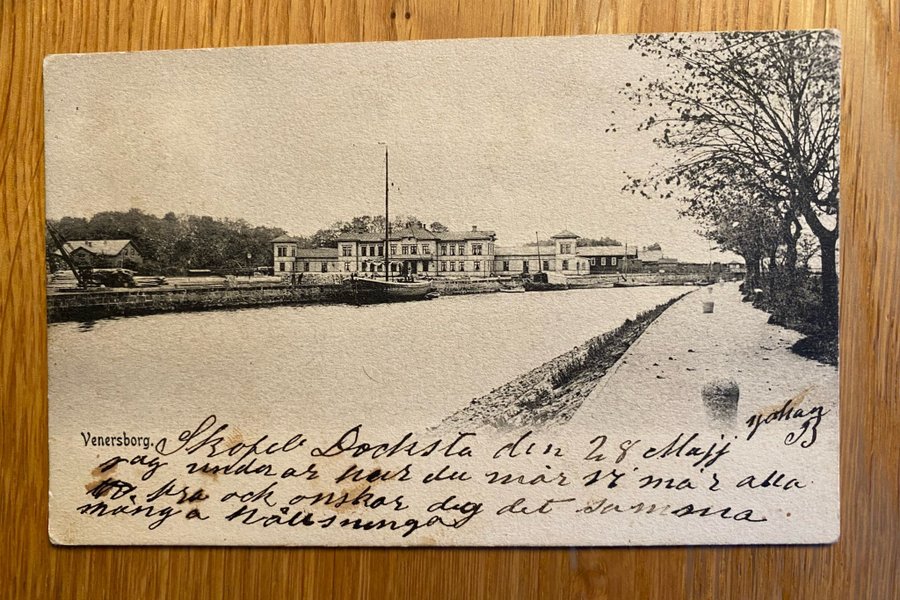 Venersborg.
Skofeb Docksta den 28 Majj
yohan
B
jag undrar hur du mår vi mår alla
bra ock onskar dig det samma
många hällsninga